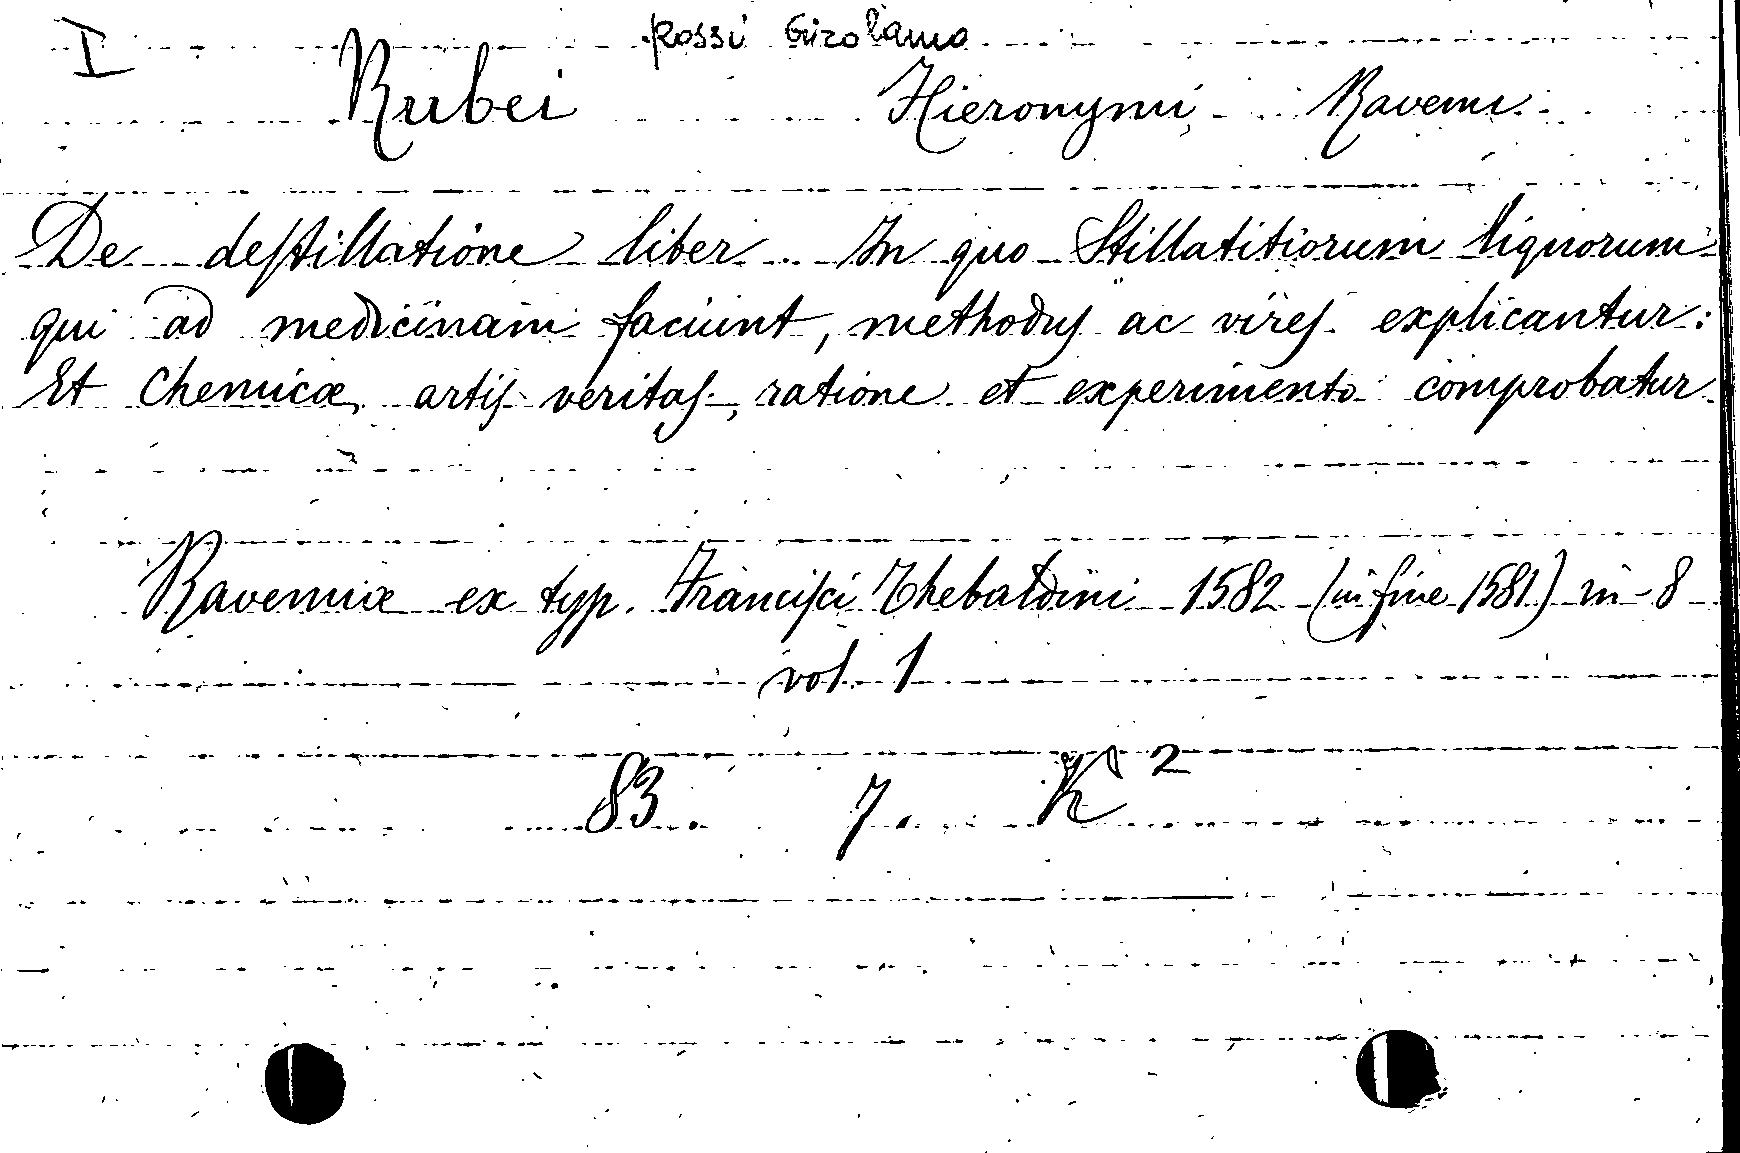 I
Rossi Girolamo
Rubei Hieronymi, Ravenn.
De destillatione liber. In quo Stillatitiorum liquorum
qui ad medicinam faciunt, methodus ac vires explicantur:
Et Chemicæ artis veritas, ratione et experimento comprobatur.
Ravennæ ex typ. Francisci Thebaldini 1582 (in fine 1581) in-8
vol. 1
83. 7. K 2